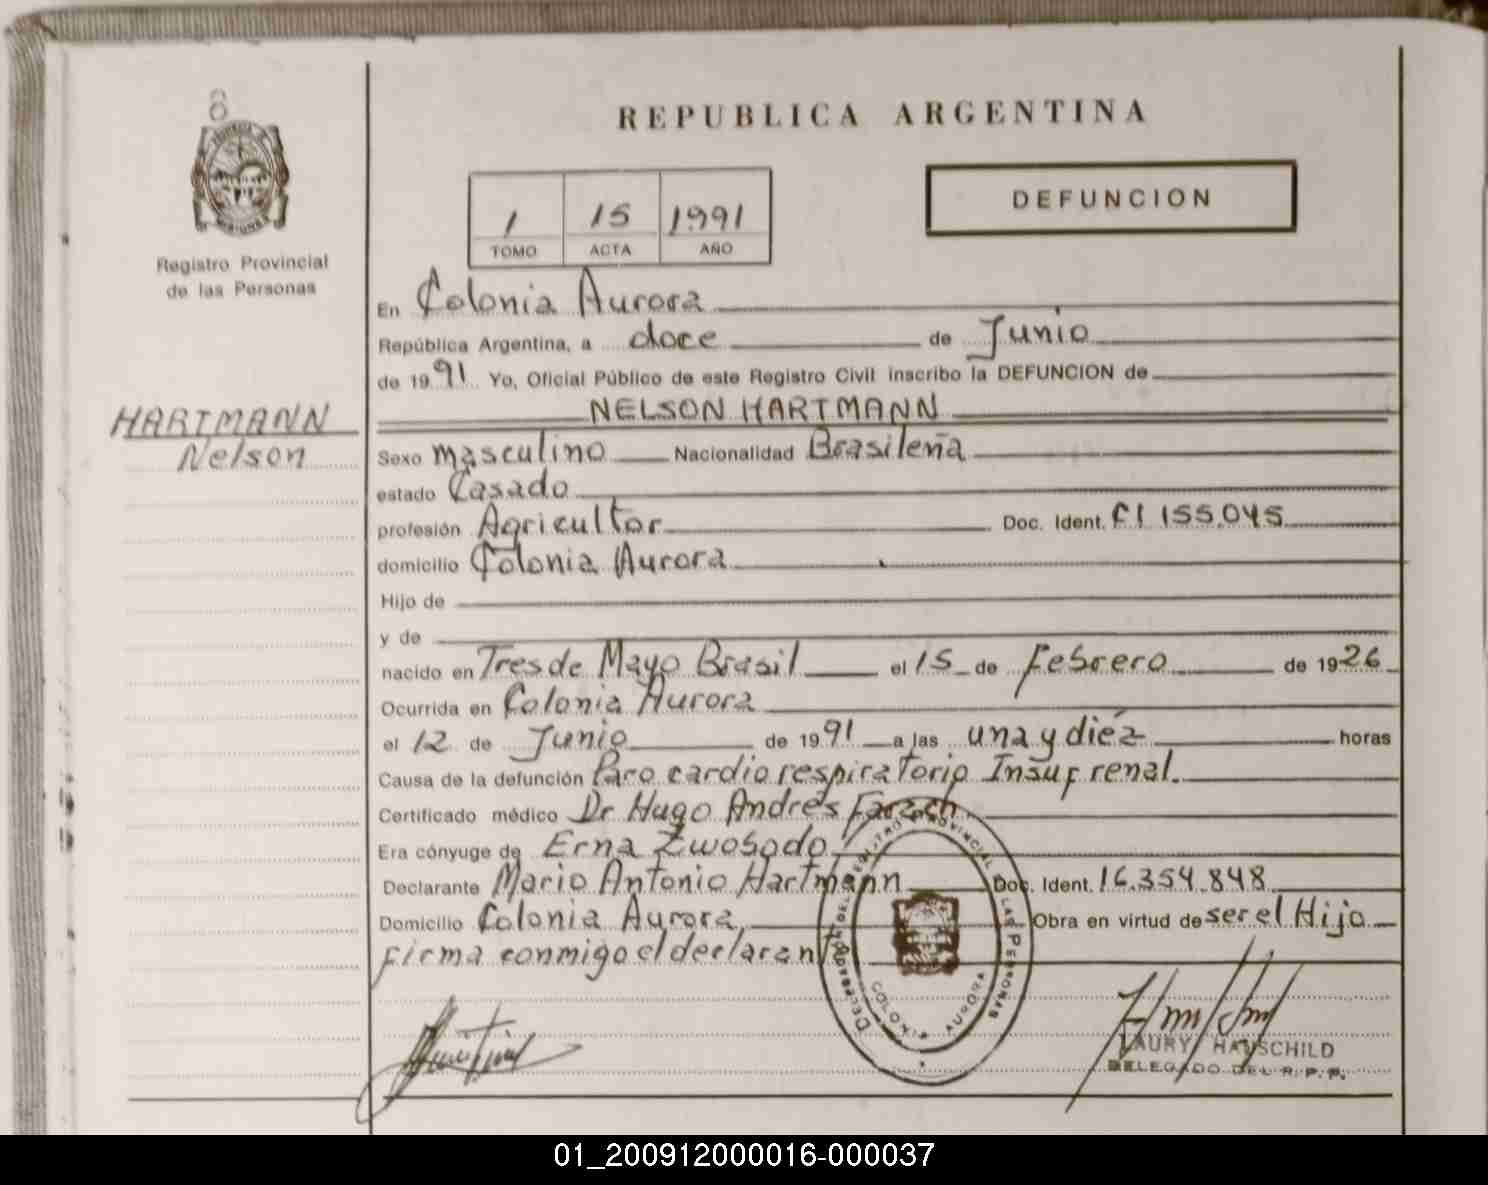 8
REPUBLICA ARGENTINA
1 15 1991
TOMO ACTA AÑO
DEFUNCION
Registro Provincial
de las Personas
HARTMANN
Nelson
En Colonia Aurora
República Argentina, a doce de Junio
de 1991 Yo, Oficial Público de este Registro Civil inscribo la DEFUNCION de
NELSON HARTMANN
Sexo masculino Nacionalidad Brasileña
estado Casado
profesión Agricultor Doc. Ident. CI 155.045
domicilio Colonia Aurora
Hijo de
y de
nacido en Tres de Mayo Brasil el 15 de Febrero de 1926
Ocurrida en Colonia Aurora
el 12 de Junio de 1991 a las una y diéz horas
Causa de la defunción Paro cardio respiratorio Insuf renal.
Certificado médico Dr Hugo Andrés
Era cónyuge de Erna Zwosodo
Declarante Mario Antonio Hartmann Doc. Ident. 16.354.848
Domicilio Colonia Aurora Obra en virtud de ser el Hijo
Firma conmigo el declarante
REGISTRO PROVINCIAL DE LAS PERSONAS
COLONIA AURORA
LAURY HAUSCHILD
DELEGADO DEL R.P.P.
01_200912000016-000037